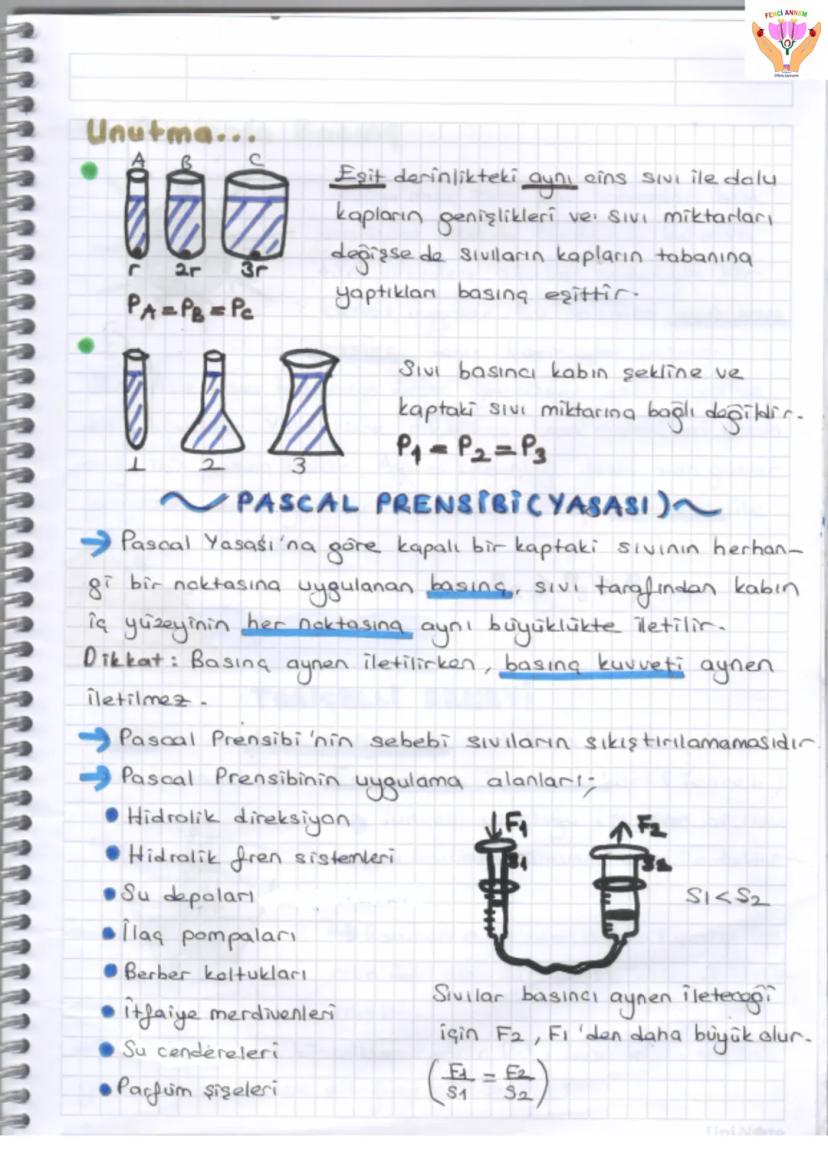 FENCİ ANNEM
Unutma...
A B C
Eşit derinlikteki aynı cins sıvı ile dolu
kapların genişlikleri ve sıvı miktarları
değişse de sıvıların kapların tabanına
yaptıkları basınç eşittir.
r 2r 3r
PA = PB = PC
Sıvı basıncı kabın şekline ve
kaptaki sıvı miktarına bağlı değildir.
P1 = P2 = P3
1 2 3
PASCAL PRENSİBİ (YASASI)
→ Pascal Yasası'na göre kapalı bir kaptaki sıvının herhan-
gi bir noktasına uygulanan basınç, sıvı tarafından kabın
iç yüzeyinin her noktasına aynı büyüklükte iletilir.
Dikkat: Basınç aynen iletilirken, basınç kuvveti aynen
iletilmez.
→ Pascal Prensibi'nin sebebi sıvıların sıkıştırılamamasıdır
→ Pascal Prensibinin uygulama alanları;
• Hidrolik direksiyon
• Hidrolik fren sistemleri
• Su depoları
• İlaç pompaları
• Berber koltukları
• İtfaiye merdivenleri
• Su cendereleri
• Parfüm şişeleri
F1 F2
S1 S2
S1 < S2
Sıvılar basıncı aynen ileteceği
için F2, F1'den daha büyük olur.
(F1/S1 = F2/S2)